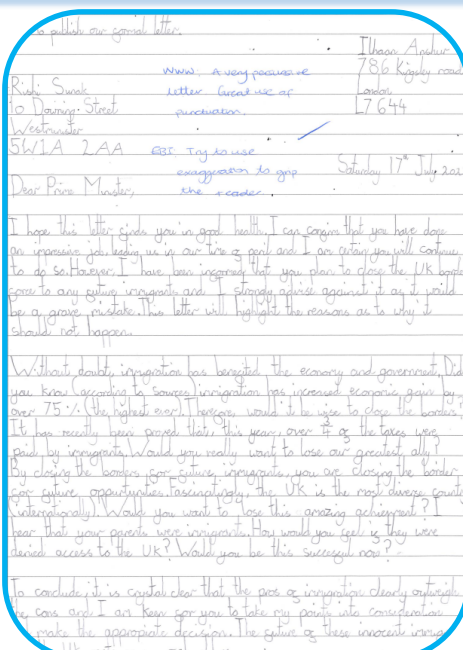 to publish our formal letter.
Ilhaan Anshur
786 Kingsley road
London
L7 644
WWW: A very persuasive
letter. Great use of
punctuation.
EBI: Try to use
exaggeration to grip
the reader.
Rishi Sunak
10 Downing Street
Westminster
SW1A 2AA
Saturday 17th July 202
Dear Prime Minister,
I hope this letter finds you in good health. I can confirm that you have done
an impressive job leading us in our time of and I am certain you will continue
to do so. However, I have been informed that you plan to close the UK
to any future immigrants and I strongly advise against it as it would
be a grave mistake. This letter will highlight the reasons as to why it
should not happen.
Without doubt, immigration has benefited the economy and government. Did
you know (according to sources) immigration has increased economic gain by
over 75% (the highest ever). Therefore, would it be wise to close the borders,
It has recently been proved that, this year, over of the taxes were
paid by immigrants. Would you really want to lose our greatest ally?
By closing the borders for future immigrants, you are closing the border
for future oppurtunities. Fascinatingly, the UK is the most diverse
(internationally). Would you want to lose this amazing achievment? I
hear that your parents were immigrants. How would you feel if they were
denied access to the UK? Would you be this successful now?
To conclude, it is crystal clear that the pros of immigration clearly outweigh
the cons and I am keen for you to take my points into consideration
make the appropriate decision. The future of these innocent